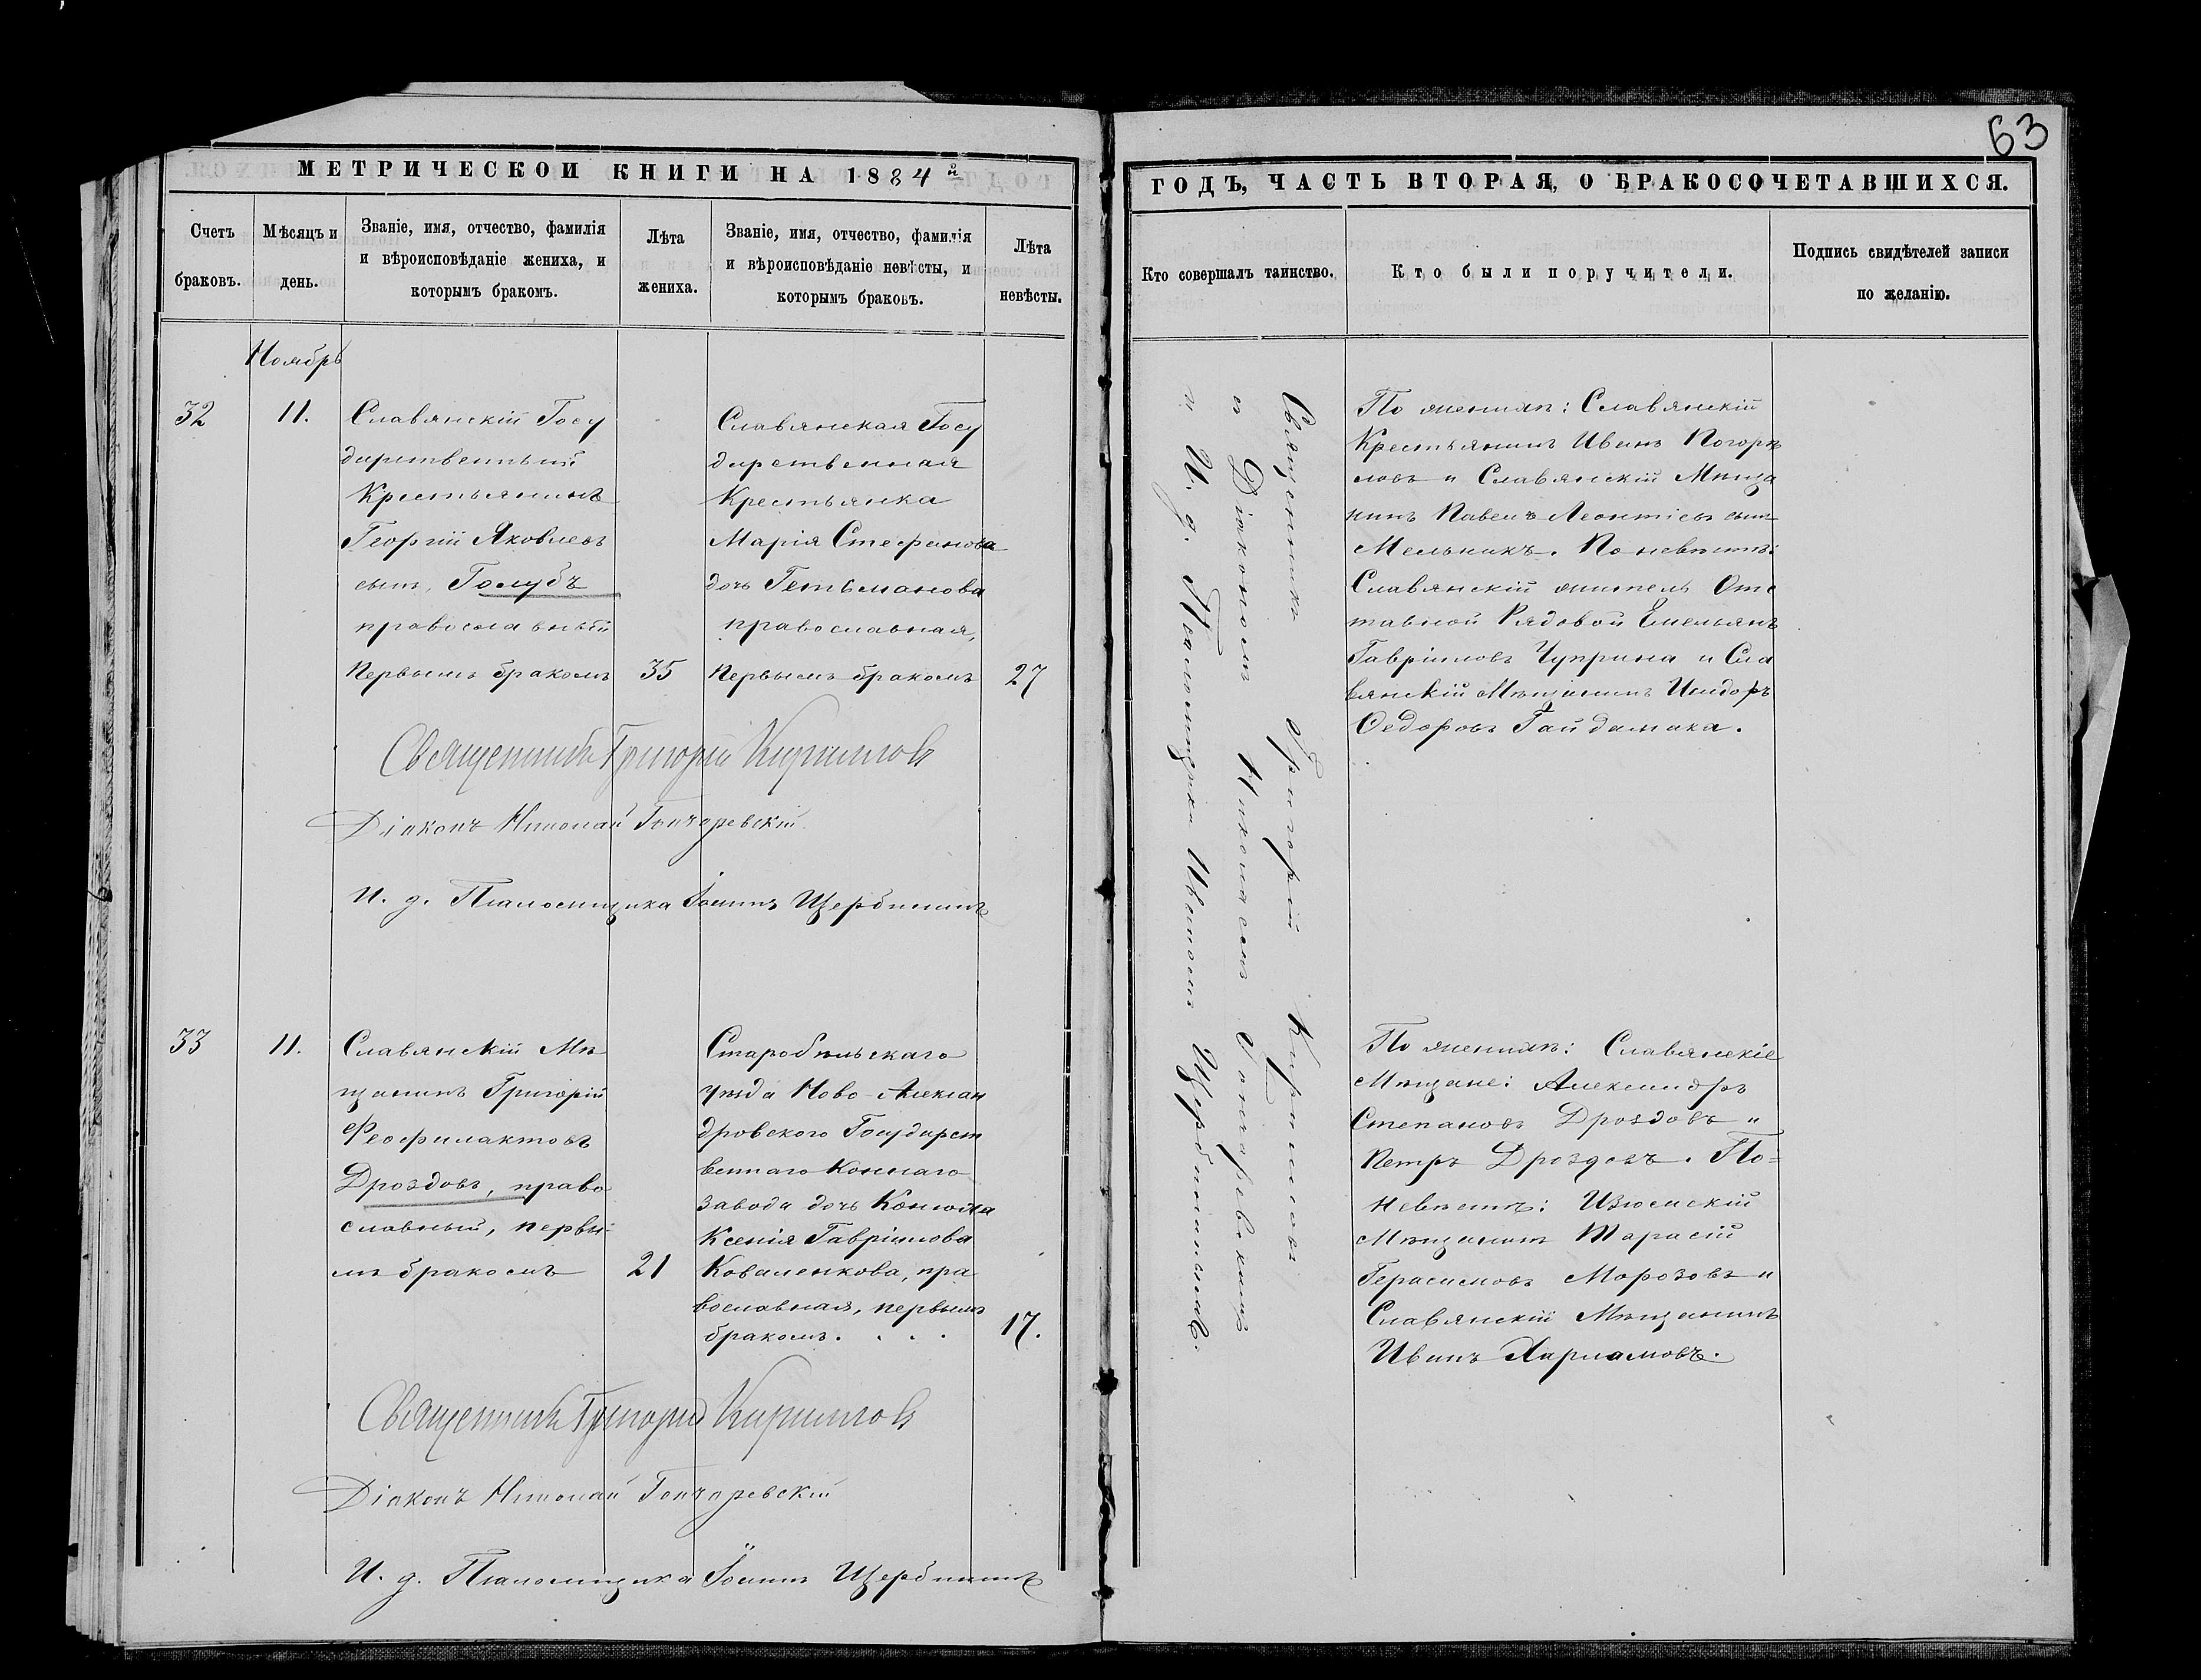 63
МЕТРИЧЕСКОЙ КНИГИ НА 1884 й
Счетъ браковъ.
Мѣсяцъ и день.
Званіе, имя, отчество, фамилія
и вѣроисповѣданіе жениха, и
которымъ бракомъ.
Лѣта жениха.
Званіе, имя, отчество, фамилія
и вѣроисповѣданіе невѣсты, и
которымъ браковъ.
Лѣта невѣсты.
Ноябрь
32
11.
Славянскій Госу
дарственный
Крестьянинъ
Георгій Яковлевъ
сынъ, Голубъ
православный
Первымъ бракомъ
35
Славянская Госу
дарственная
Крестьянка
Марія Стефанова
дочь Гетьманова
православная,
Первымъ бракомъ
27
Священникъ Григорій Кирилловъ
Діаконъ Николай Гончаревскій
И. д. Псаломщика Іоаннъ Щербининъ
33
11.
Славянскій Мѣ
щанинъ Григорій
Феофилактовъ
Дроздовъ, право
славный, первы-
мъ бракомъ
21
Старобѣльскаго
уѣзда Ново-Алексан
дровского Государст
веннаго Коннаго
завода дочь Конюха
Ксенія Гавріилова
Коваленкова, пра
вославная, первымъ
бракомъ. . . .
17.
Священникъ Григорій Кирилловъ
Діаконъ Николай Гончаревскій
И. д. Псаломщика Іоаннъ Щербининъ
ГОДЪ, ЧАСТЬ ВТОРАЯ, О БРАКОСОЧЕТАВШИХСЯ.
Кто совершалъ таинство.
Кто были поручители.
Подпись свидѣтелей записи
по желанію.
Священникъ Григорій Кирилловъ
съ Діакономъ Николаемъ Гончаревскимъ
и И. д. Псаломщика Иваномъ Щербининымъ.
По женихѣ: Славянскій
Крестьянинъ Иванъ Погорѣ
ловъ и Славянскій Мѣща
нинъ Павелъ Леонтіевъ сынъ
Мельникъ. По невѣстѣ:
Славянскій житель Отс
тавной Рядовой Емельянъ
Гавріиловъ Чуприна и Сла
вянскій Мѣщанинъ Исидоръ
Ѳедоровъ Гайдамака.
По женихѣ: Славянскіе
Мѣщане: Александръ
Степановъ Дроздовъ и
Петръ Дроздовъ. По-
невѣстѣ: Изюмскій
Мѣщанинъ Тарасій
Герасимовъ Морозовъ и
Славянскій Мѣщанинъ
Иванъ Харламовъ.